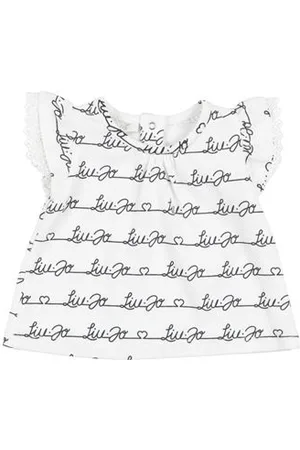 Liu·Jo Liu·Jo
Liu·Jo Liu·Jo Liu·Jo
Liu·Jo Liu·Jo
Liu·Jo Liu·Jo Liu·Jo
Liu·Jo Liu·Jo Liu·Jo
Liu·Jo Liu·Jo Liu·Jo
Liu·Jo Liu·Jo Liu·Jo